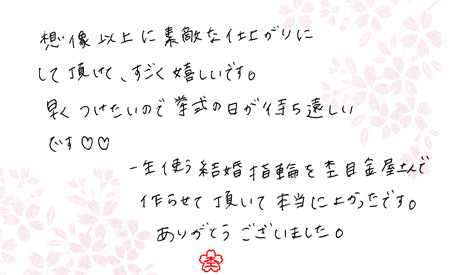 想像以上に素敵な仕上がりに
して頂けて、すごく嬉しいです。
早くつけたいので挙式の日が待ち遠しい
です♡♡
一生使う結婚指輪を杢目金屋さんで
作らせて頂いて本当によかったです。
ありがとうございました。
杢